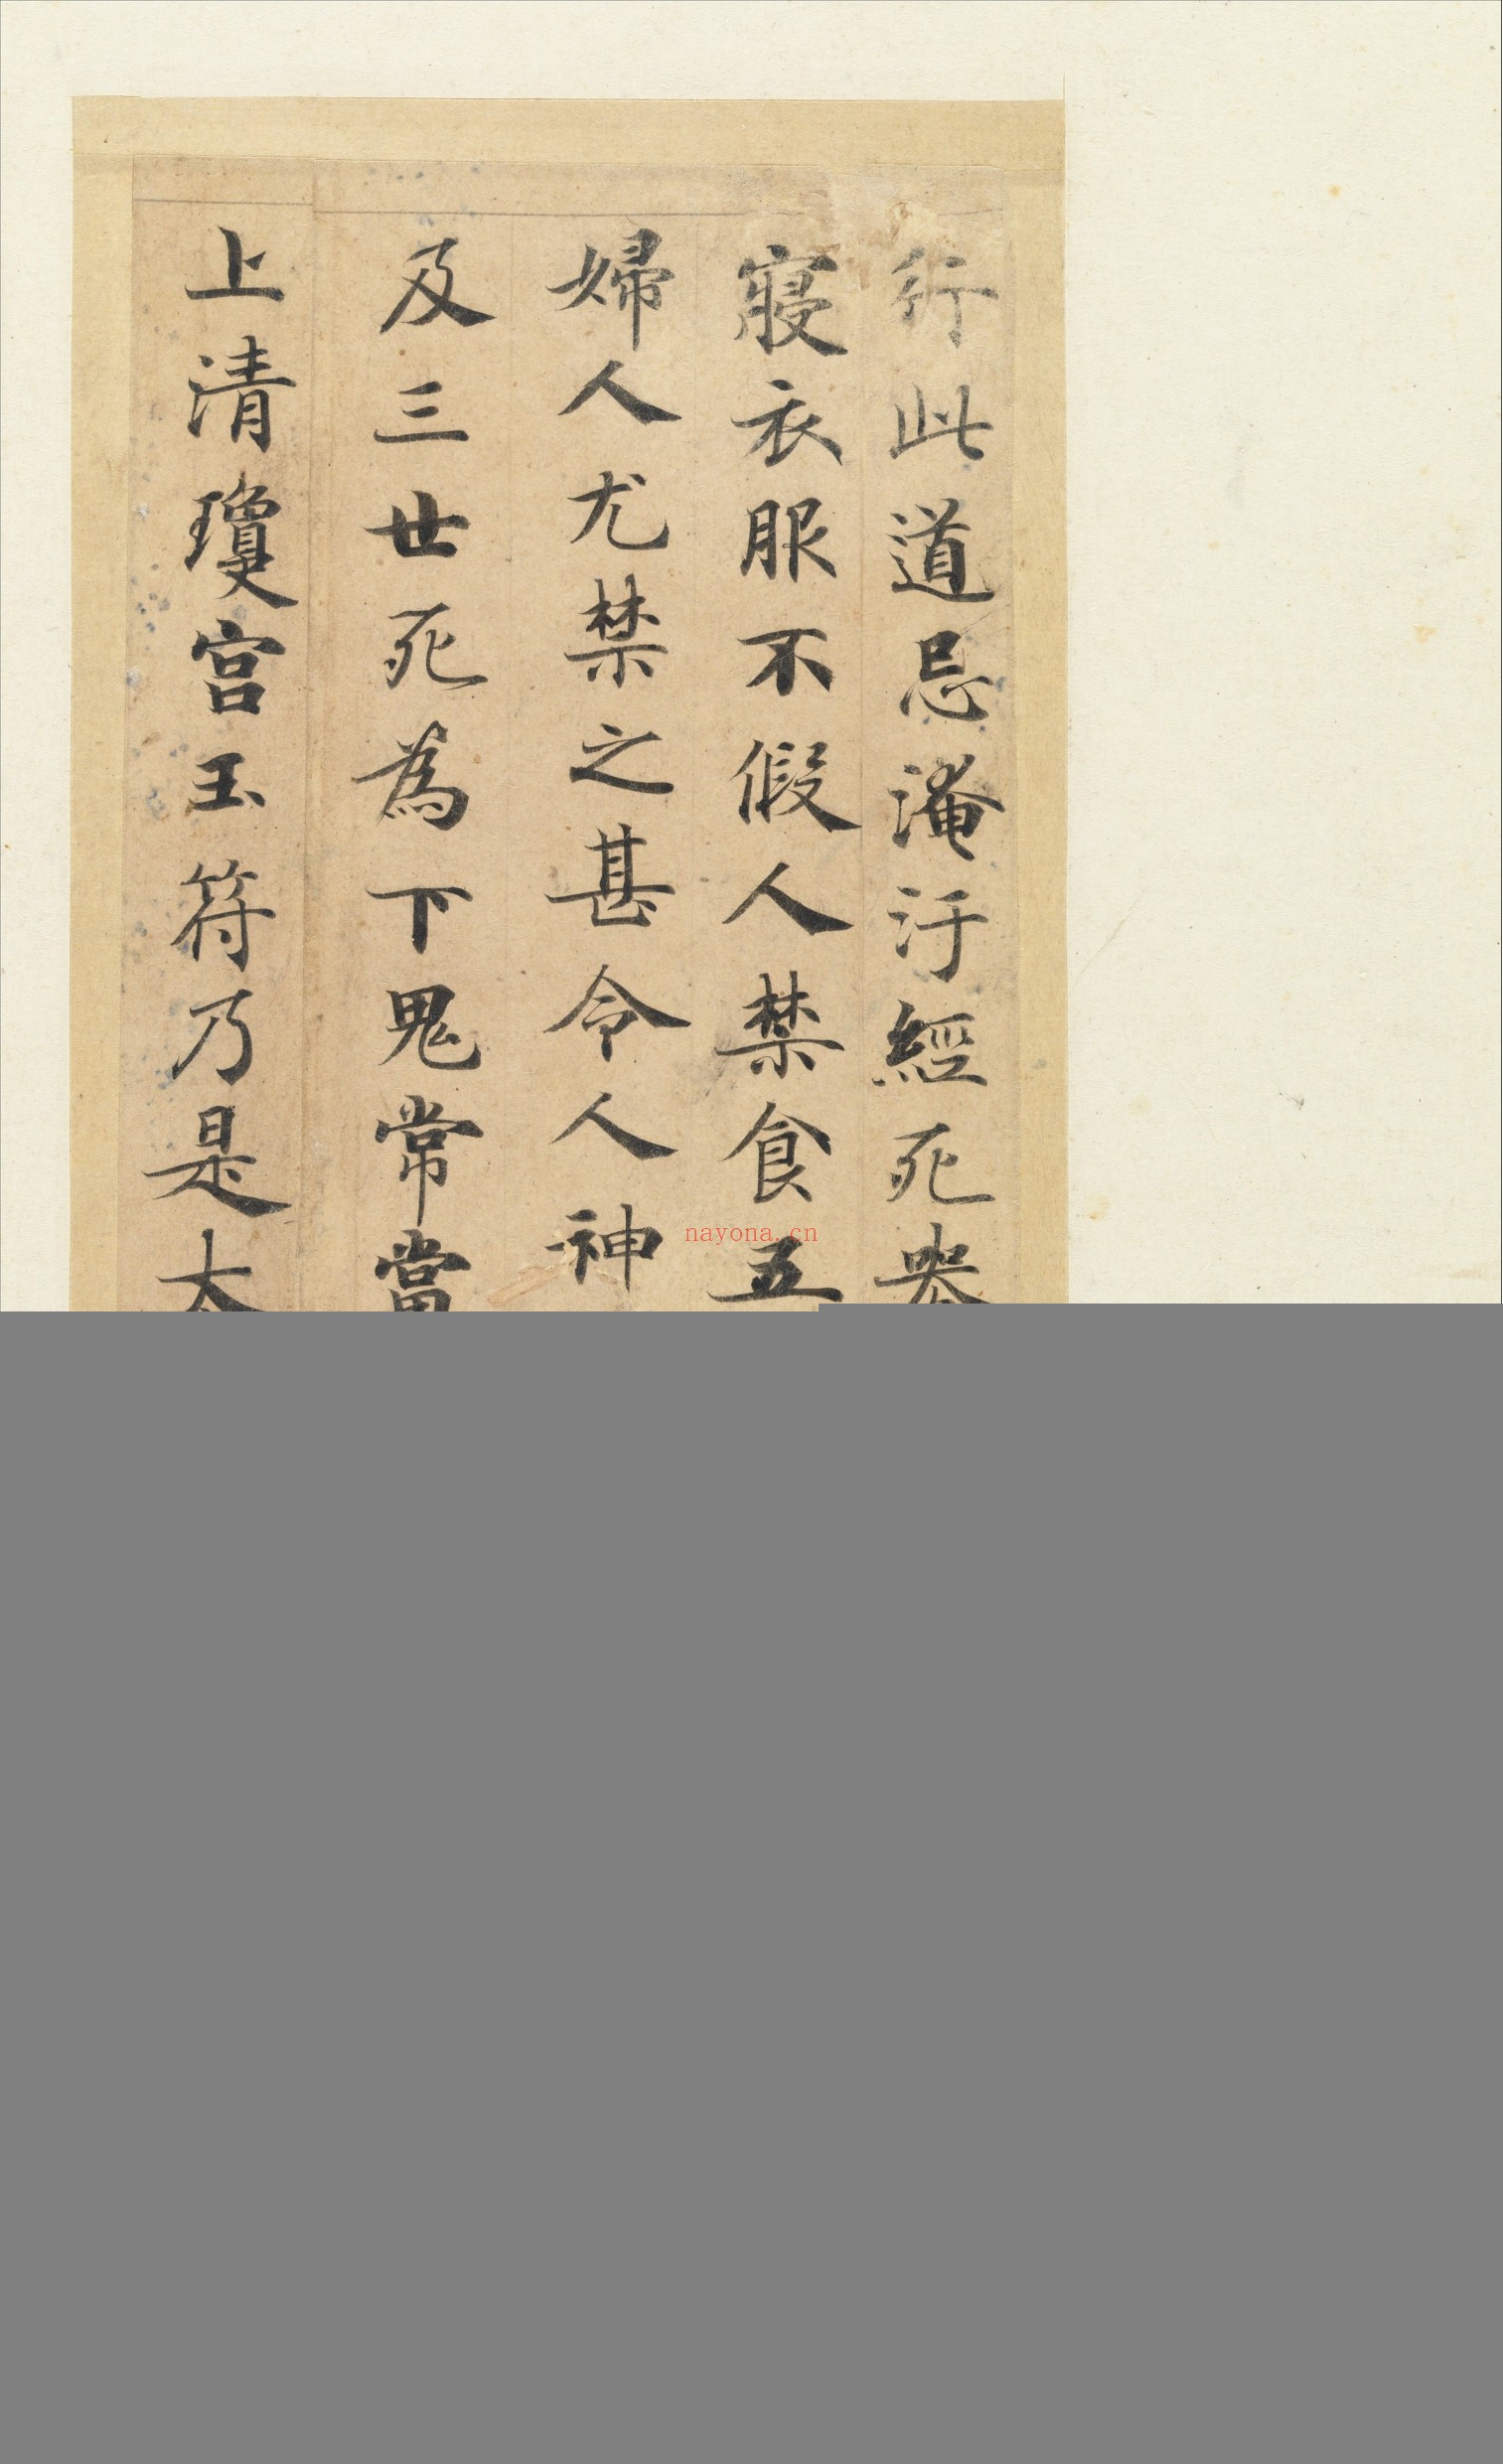 行此道忌淹汙經死喪
寢衣服不假人禁食五
婦人尤禁之甚令人神
及三世死為下鬼常當
上清瓊宮玉符乃是太
nayona.cn